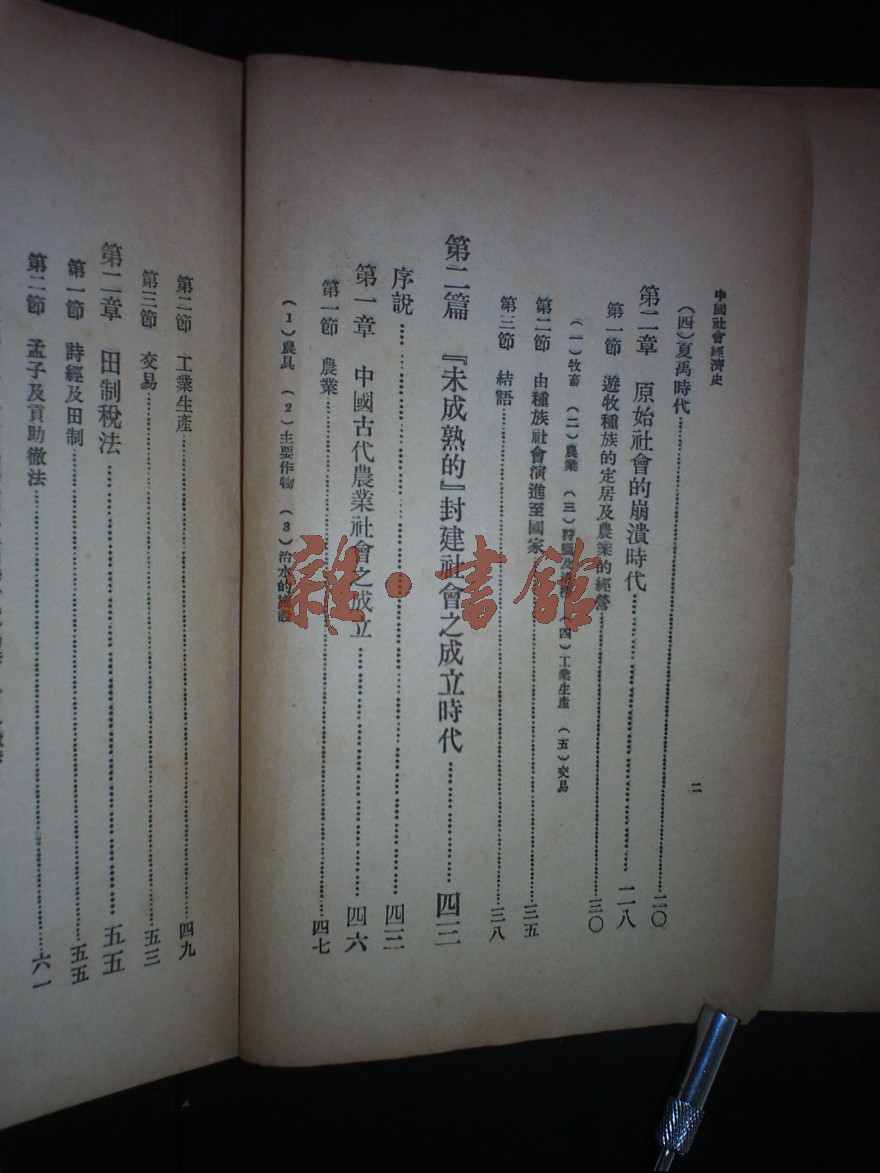 中國社會經濟史
二
（四）夏禹時代……二〇
第二章　原始社會的崩潰時代……二八
第一節　遊牧種族的定居及農業的經營……三〇
（一）牧畜　（二）農業　（三）狩獵及　（四）工業生產　（五）交易
第二節　由種族社會演進至國家……三五
第三節　結語……三八
第二篇　『未成熟的』封建社會之成立時代……四三
序說……四三
第一章　中國古代農業社會之成立……四六
第一節　農業……四七
（1）農具　（2）主要作物　（3）治水的設
第二節　工業生產……四九
第三節　交易……五三
第二章　田制稅法……五五
第一節　詩經及田制……五五
第二節　孟子及貢助徹法……六一
雜·書館